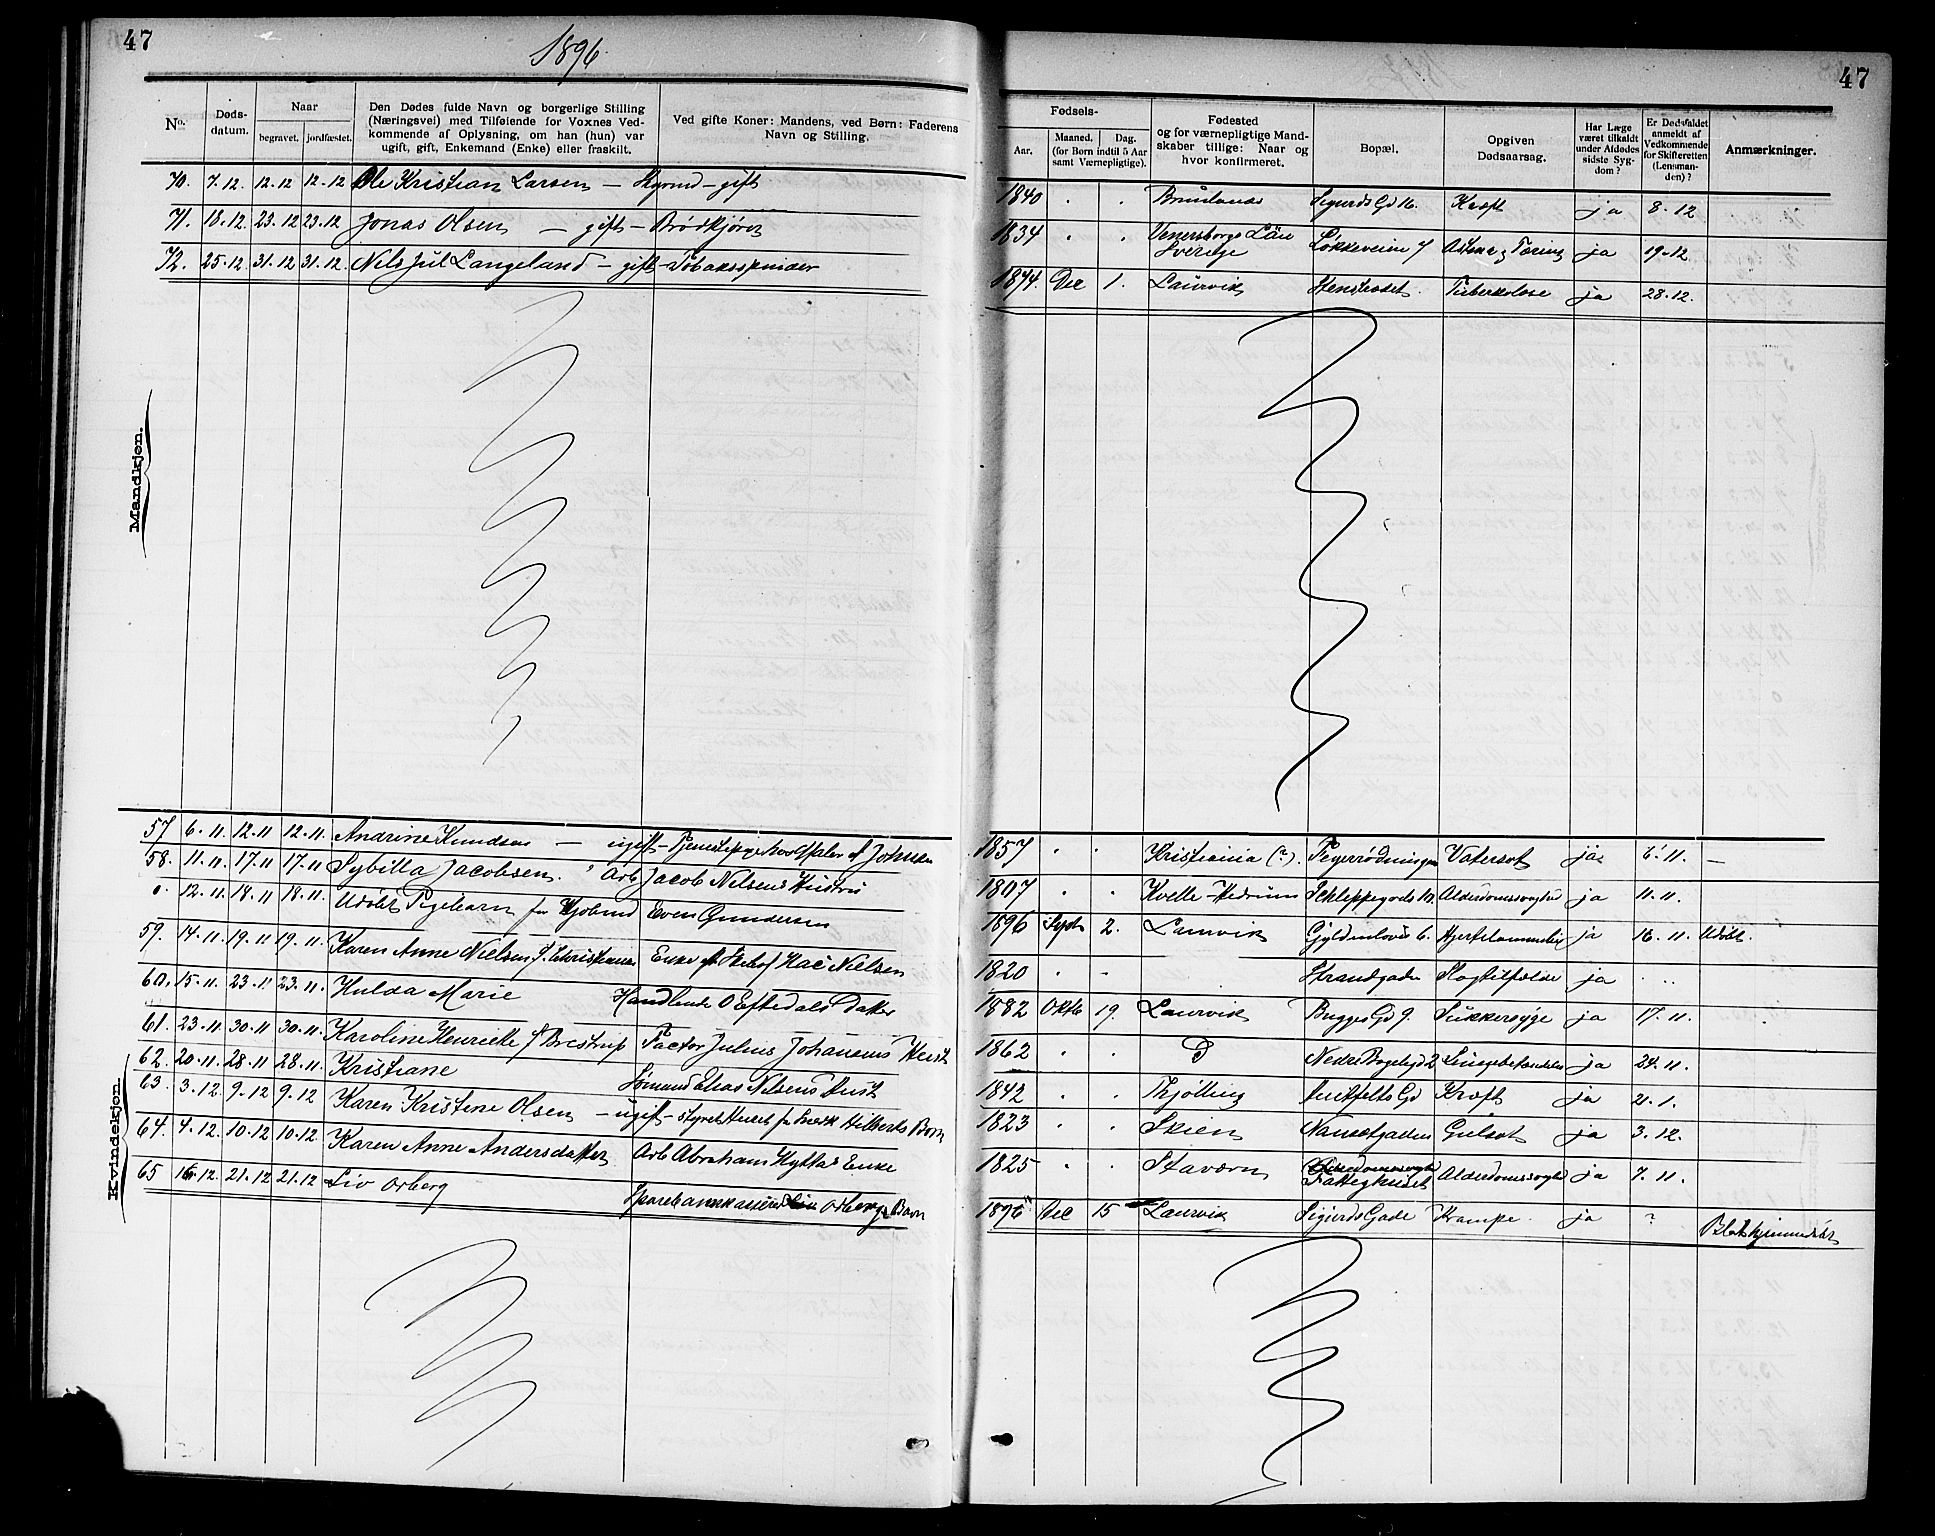 47
1896.
47
No.
Døds-
datum.
Naar
begravet.
jordfæstet.
Den Dødes fulde Navn og borgerlige Stilling
(Næringsvei) med Tilføiende for Voxnes Ved-
kommende af Oplysning, om han (hun) var
ugift, gift, Enkemand (Enke) eller fraskilt.
Ved gifte Koner: Mandens, ved Børn: Faderens
Navn og Stilling.
Fødsels-
Aar.
Maaned.
Dag.
(for Børn indtil 5 Aar
samt Værnepligtige).
Fødested
og for værnepligtige Mand-
skaber tillige: Naar og
hvor konfirmeret.
Bopæl.
Opgiven
Dødsaarsag.
Har Læge
været tilkaldt
under Afdødes
sidste Syg-
dom?
Er Dødsfaldet
anmeldt af
Vedkommende
for Skifteretten
(Lensman-
den)?
Anmærkninger.
Mandkjøn.
70. 7.12. 12.12 12.12 Ole Kristian Larsen — gift 1840 . . Brunlanes Sigurds Gd 16. Kræft ja 8.12
71. 18.12. 23.12 23.12 Jonas Olsen — gift — Brødkjører 1834 . . Venersborgs Län
Sverige Løkkeveien 7 ja 19.12
72. 25.12 31.12 31.12 Nils Jul Langeland — gift — Tobaksspinder 1874. Dec 1. Laurvik Tuberkolose ja 28.12.
Kvindekjøn.
57 6.11. 12.11 12.11. Andrine Knudsen — ugift — 1857 . . Kristiania (?). Vatersot ja 6.11. —
58. 11.11. 17.11 17.11 Sybilla Jacobsen. Arb Jacob Nilsens Hustru 1807 . . Kvelle - Hedrum Alderdomssvaghed ja 11.11.
0. 12.11. 18.11 18.11. Udøbt Pigebarn Even Gundersen 1896 Sept 2. Laurvik Gyldenløves 6. ja 16.11. Udøbt.
59. 14.11. 19.11 19.11. Karen Anne Nielsen f. Enke Nielsen 1820 . . Strandgaden Slagtilfælde ja . ..
60. 15.11. 23.11 23.11. Hulda Marie Handlende O Eftedals Datter 1882 Oktb 19. Laurvik Bugges Gd 9. Sukkersyge ja 17.11.
61. 23.11. 30.11 30.11. Karoline Henriette f Brestrup Factor Julius Johansens 1862 . . D ja 24.11.
62. 20.11. 28.11 28.11. Kristiane Sømand Elias Nilsens Hust 1842 . . Thjølling Kræft ja 21.1.
63. 3.12. 9.12 9.12 Karen Kristine Olsen — ugift — Hilberts Børn 1823 . . Skien Nansetgaden Gulsot ja 3.12.
64. 4.12. 10.12 10.12. Karen Anne Andersdatter Arb Abraham Hyttas Enke 1825 . . Staværn Fattighuset Alderdomssvaghed ja 7.11.
65 16.12. 21.12 21.12 Liv Orberg Sparebankkasserer Orbergs Barn 1896 Dec 15 Laurvik Sigurds Gade Krampe. ja ?